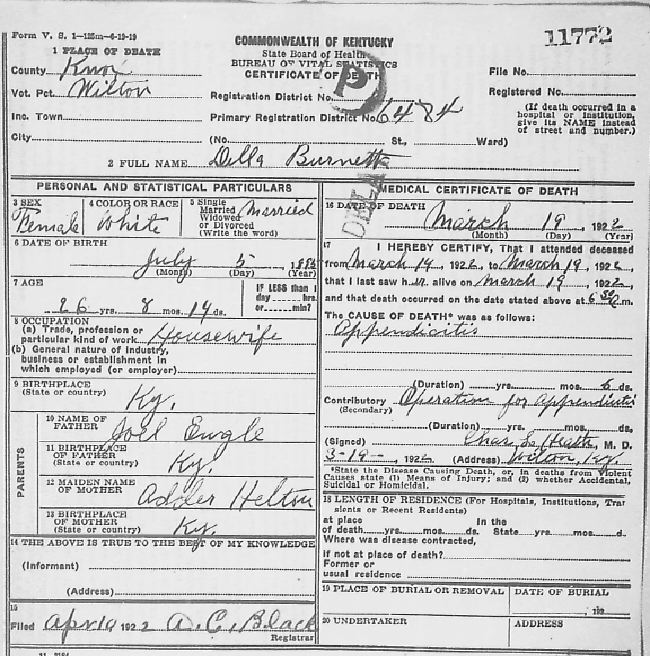 Form V. S. 1—125m—6-19-19
COMMONWEALTH OF KENTUCKY
State Board of Health
BUREAU OF VITAL STATISTICS
CERTIFICATE OF DEATH
11772
1 PLACE OF DEATH
County Knox
Vot. Pct. Wilton
Inc. Town
City
Registration District No.
Primary Registration District No. 6484
(No. St., Ward)
File No.
Registered No.
(If death occurred in a hospital or institution, give its NAME instead of street and number.)
P
DELA
2 FULL NAME Della Burnette
PERSONAL AND STATISTICAL PARTICULARS
3 SEX Female
4 COLOR OR RACE White
5 Single Married Widowed or Divorced (Write the word) Married
6 DATE OF BIRTH
July 5, 1886
(Month) (Day) (Year)
7 AGE
yrs. 8 mos. 14 ds.
IF LESS than 1 day hrs. or min?
8 OCCUPATION
(a) Trade, profession or particular kind of work Housewife
(b) General nature of industry, business or establishment in which employed (or employer)
9 BIRTHPLACE
(State or country) Ky.
PARENTS
10 NAME OF FATHER Joel Engle
11 BIRTHPLACE OF FATHER (State or country) Ky.
12 MAIDEN NAME OF MOTHER Helton
13 BIRTHPLACE OF MOTHER (State or country) Ky.
14 THE ABOVE IS TRUE TO THE BEST OF MY KNOWLEDGE
(Informant)
(Address)
15
Filed 1922 A. C. Black
Registrar
MEDICAL CERTIFICATE OF DEATH
16 DATE OF DEATH
March 19, 1922
(Month) (Day) (Year)
17 I HEREBY CERTIFY, That I attended deceased
from March 14, 1922, to March 19, 1922,
that I last saw h er alive on March 19, 1922,
and that death occurred on the date stated above at 6 m.
The CAUSE OF DEATH* was as follows:
Appendicitis
(Duration) yrs. mos. 6 ds.
Contributory Operation for Appendicitis
(Secondary)
(Duration) yrs. mos. ds.
(Signed) Chas. L. Heath, M. D.
3-19-, 1922 (Address) Wilton, Ky.
*State the Disease Causing Death, or, in deaths from Violent Causes state (1) Means of Injury; and (2) whether Accidental, Suicidal or Homicidal.
18 LENGTH OF RESIDENCE (For Hospitals, Institutions, Tran
sients or Recent Residents)
at place In the
of death yrs. mos. ds. State yrs. mos. d.
Where was disease contracted,
if not at place of death?
Former or
usual residence
19 PLACE OF BURIAL OR REMOVAL
DATE OF BURIAL
, 19
20 UNDERTAKER
ADDRESS